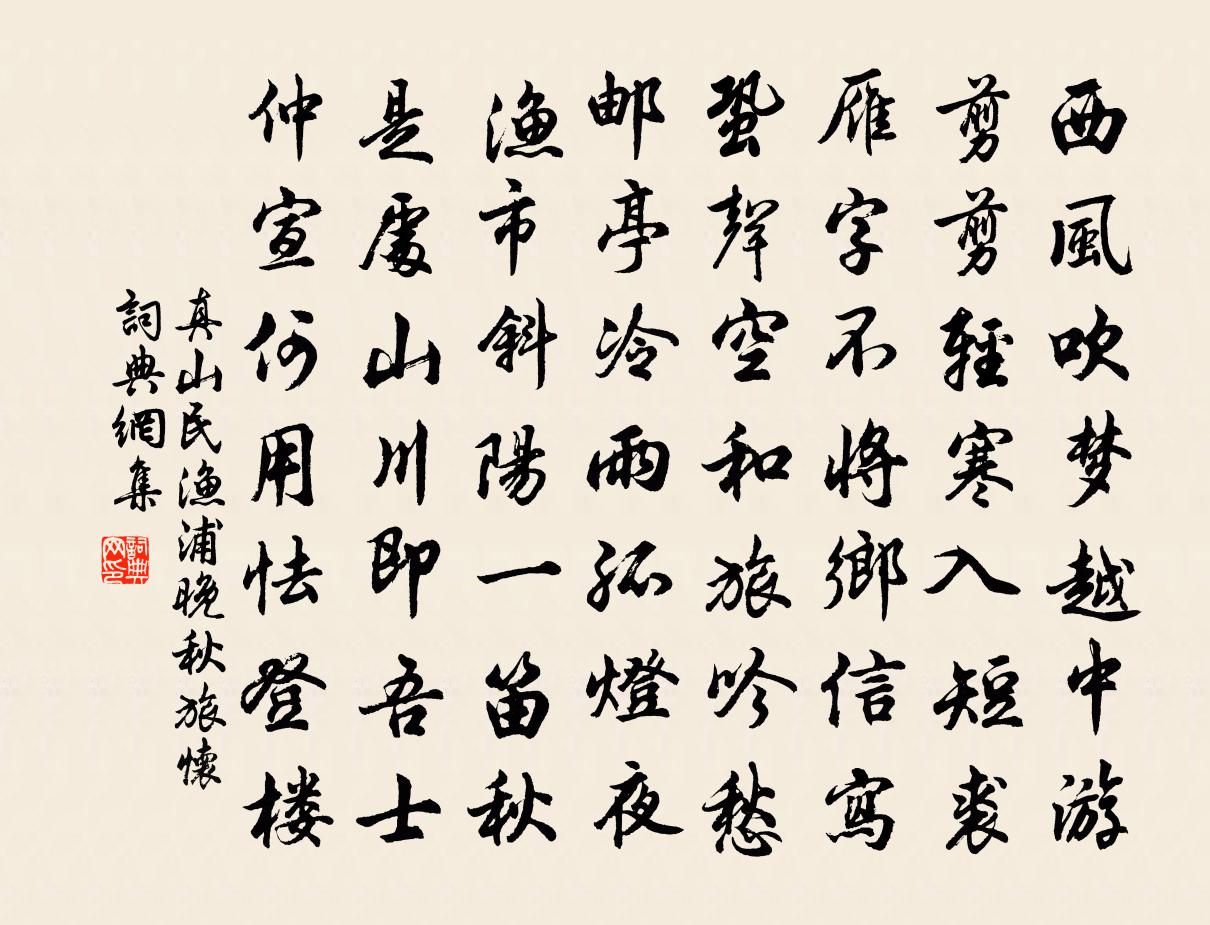 西風吹梦越中游
剪剪輕寒入短裘
雁字不將鄉信寫
蛩聲空和旅吟愁
邮亭冷雨孤燈夜
漁市斜陽一笛秋
是處山川即吾土
仲宣何用怯登楼
真山民漁浦晚秋旅懷
詞典網集
詞典
网印